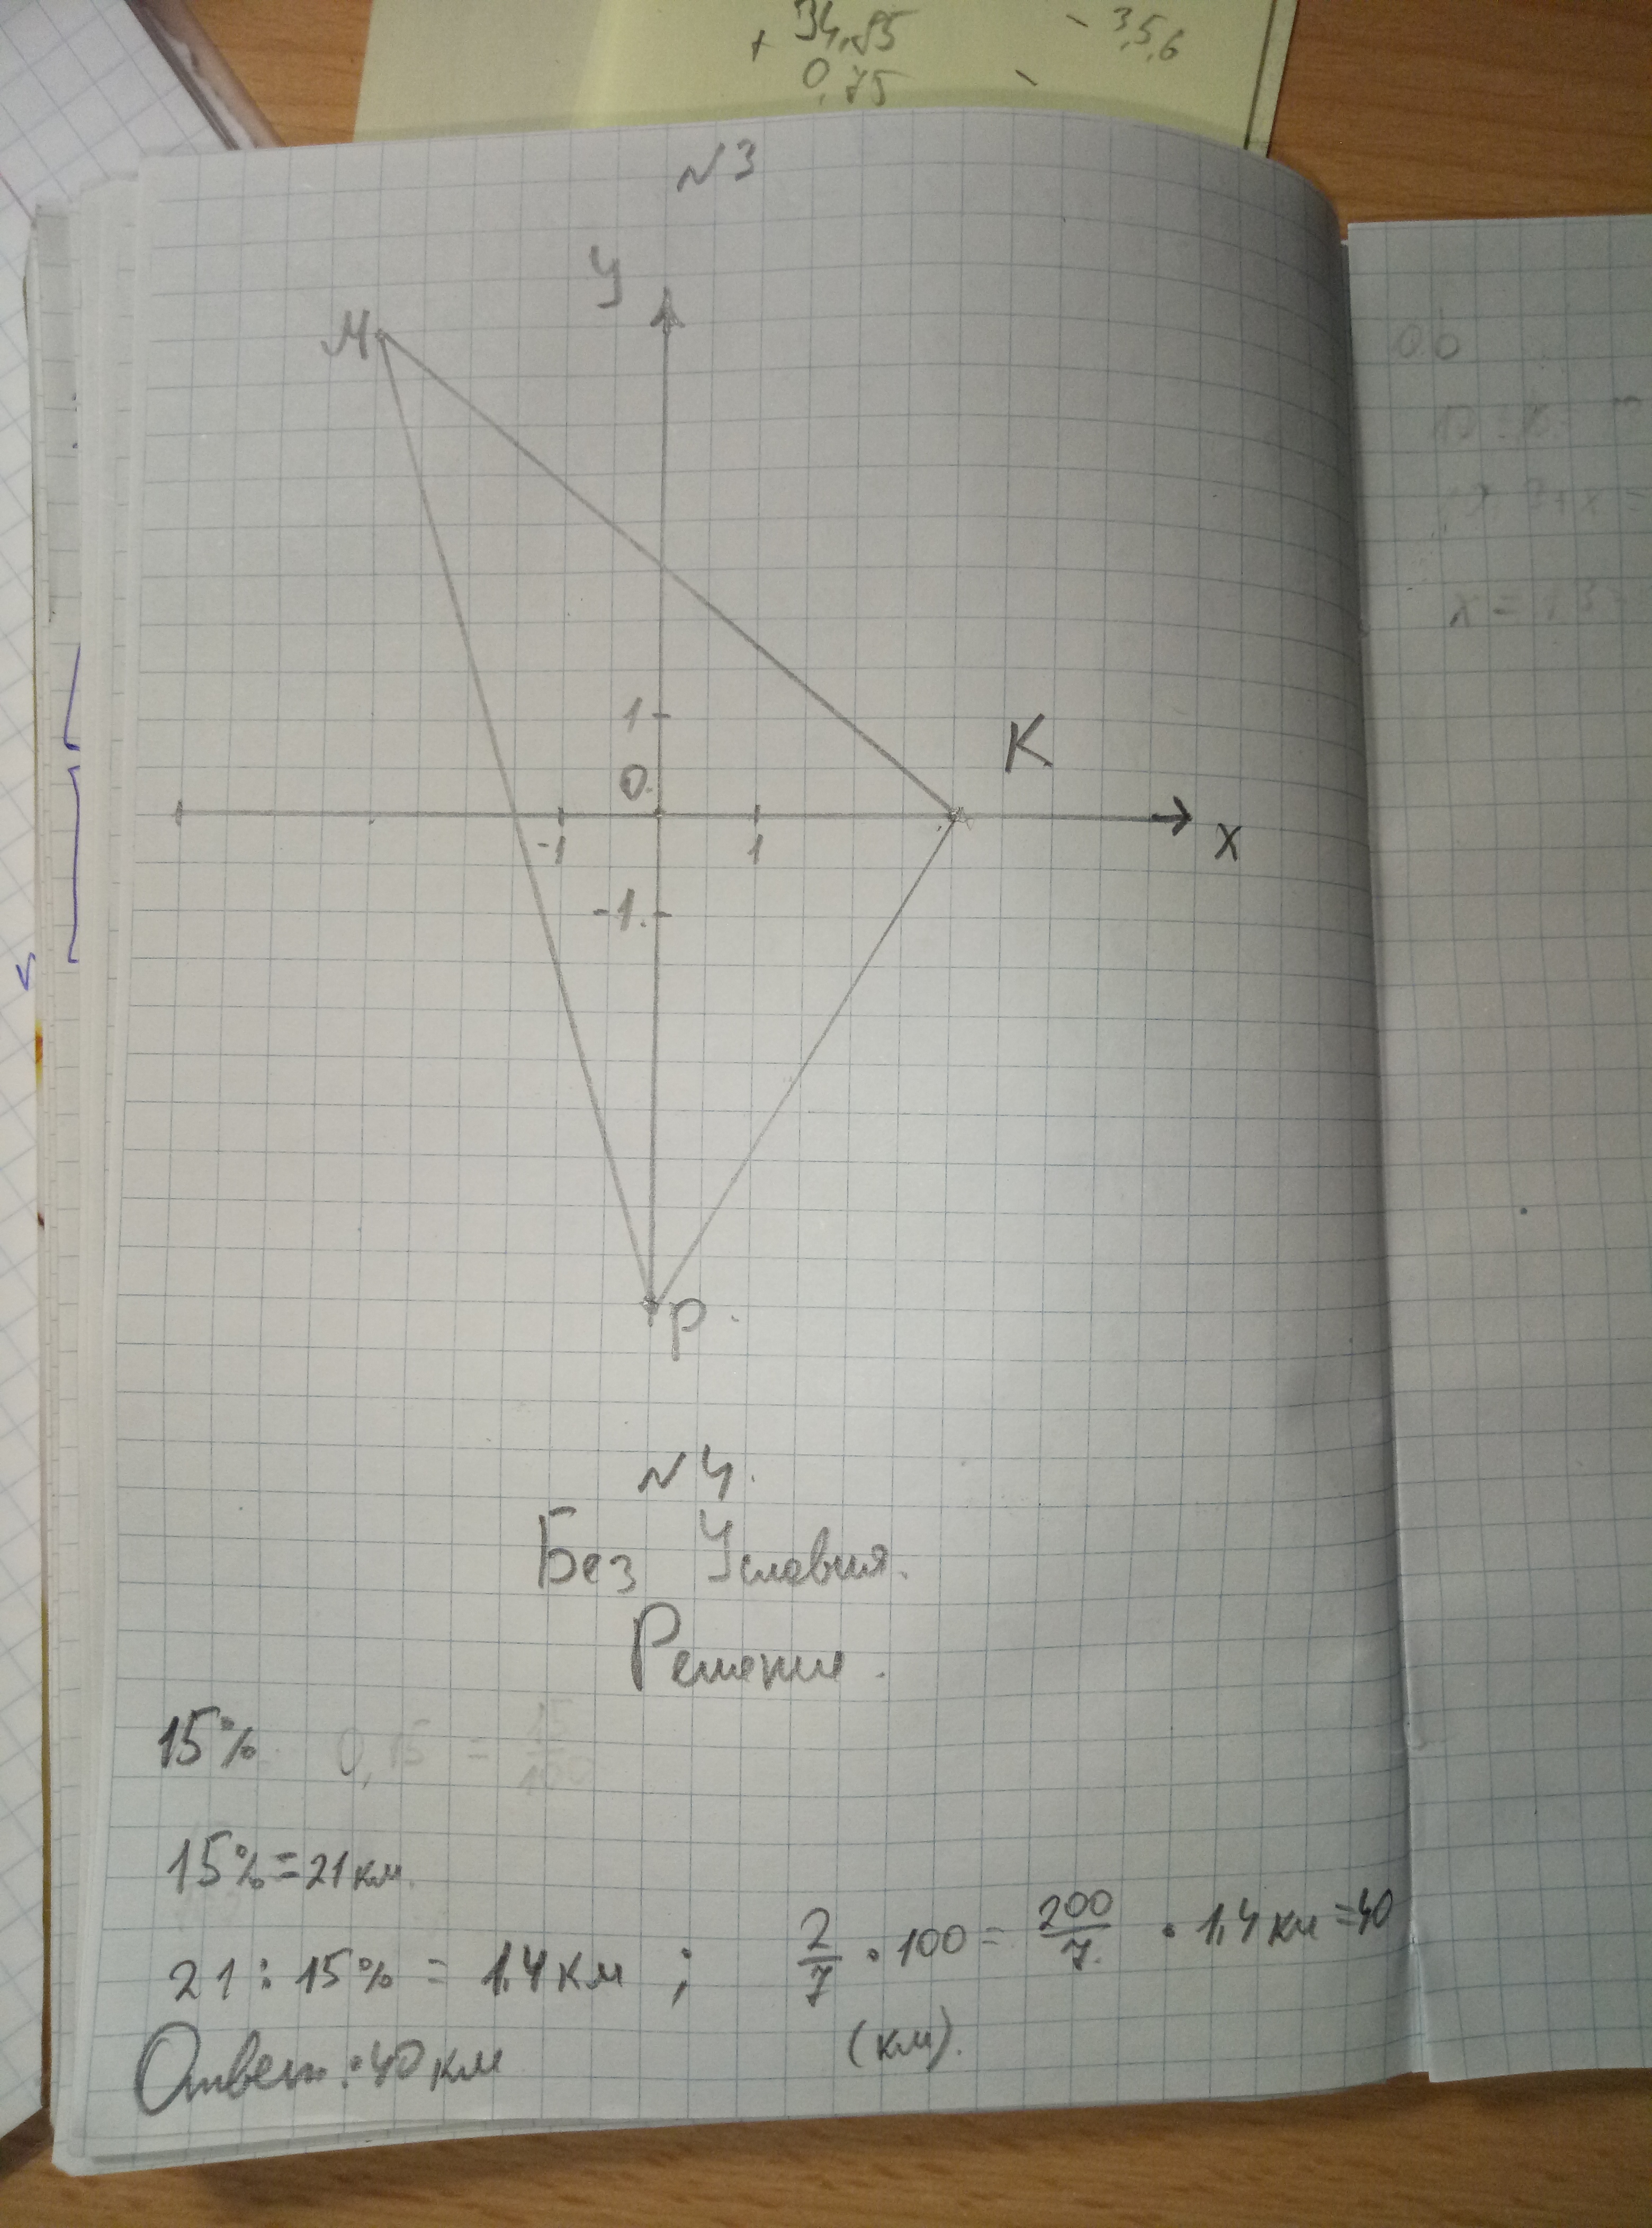 + 34,85 - 3,5,6
0,75 -
N3
у
М
1
К
0
-1 1 х
-1.
Р.
N4.
Без Условия.
Решение.
15% 0,15 = 15/100
15% = 21 км.
21 : 15% = 1,4 км ; 2/7 · 100 = 200/7 · 1,4 км = 40
(км).
Ответ: 40 км